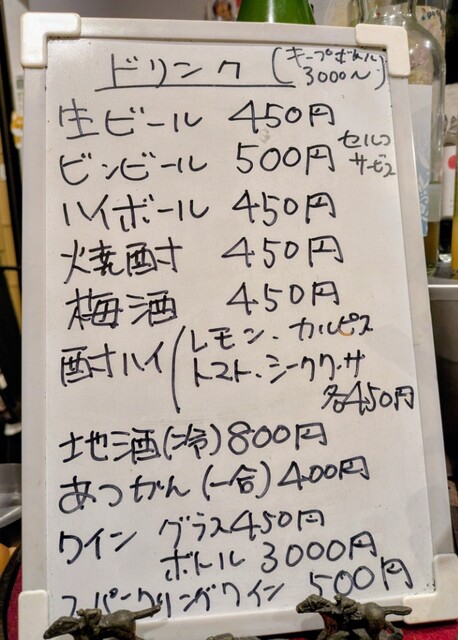 ドリンク (キープボトル
3000〜)
生ビール 450円
ビンビール 500円 セルフ
サービス
ハイボール 450円
焼酎 450円
梅酒 450円
酎ハイ (レモン、カルピス
トマト、シークヮーサー
各450円
地酒(冷) 800円
あつかん(一合) 400円
ワイン グラス 450円
ボトル 3000円
スパークリングワイン 500円